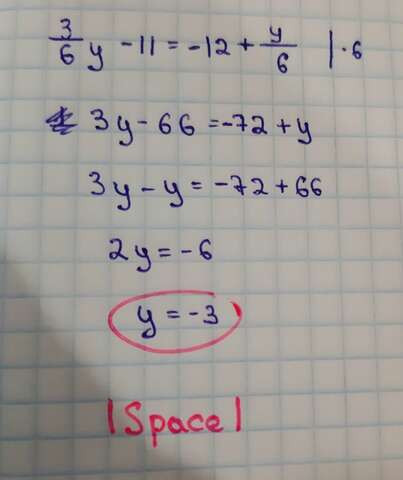 3/6 y - 11 = -12 + y/6 | · 6
3y - 66 = -72 + y
3y - y = -72 + 66
2y = -6
y = -3
|Space|